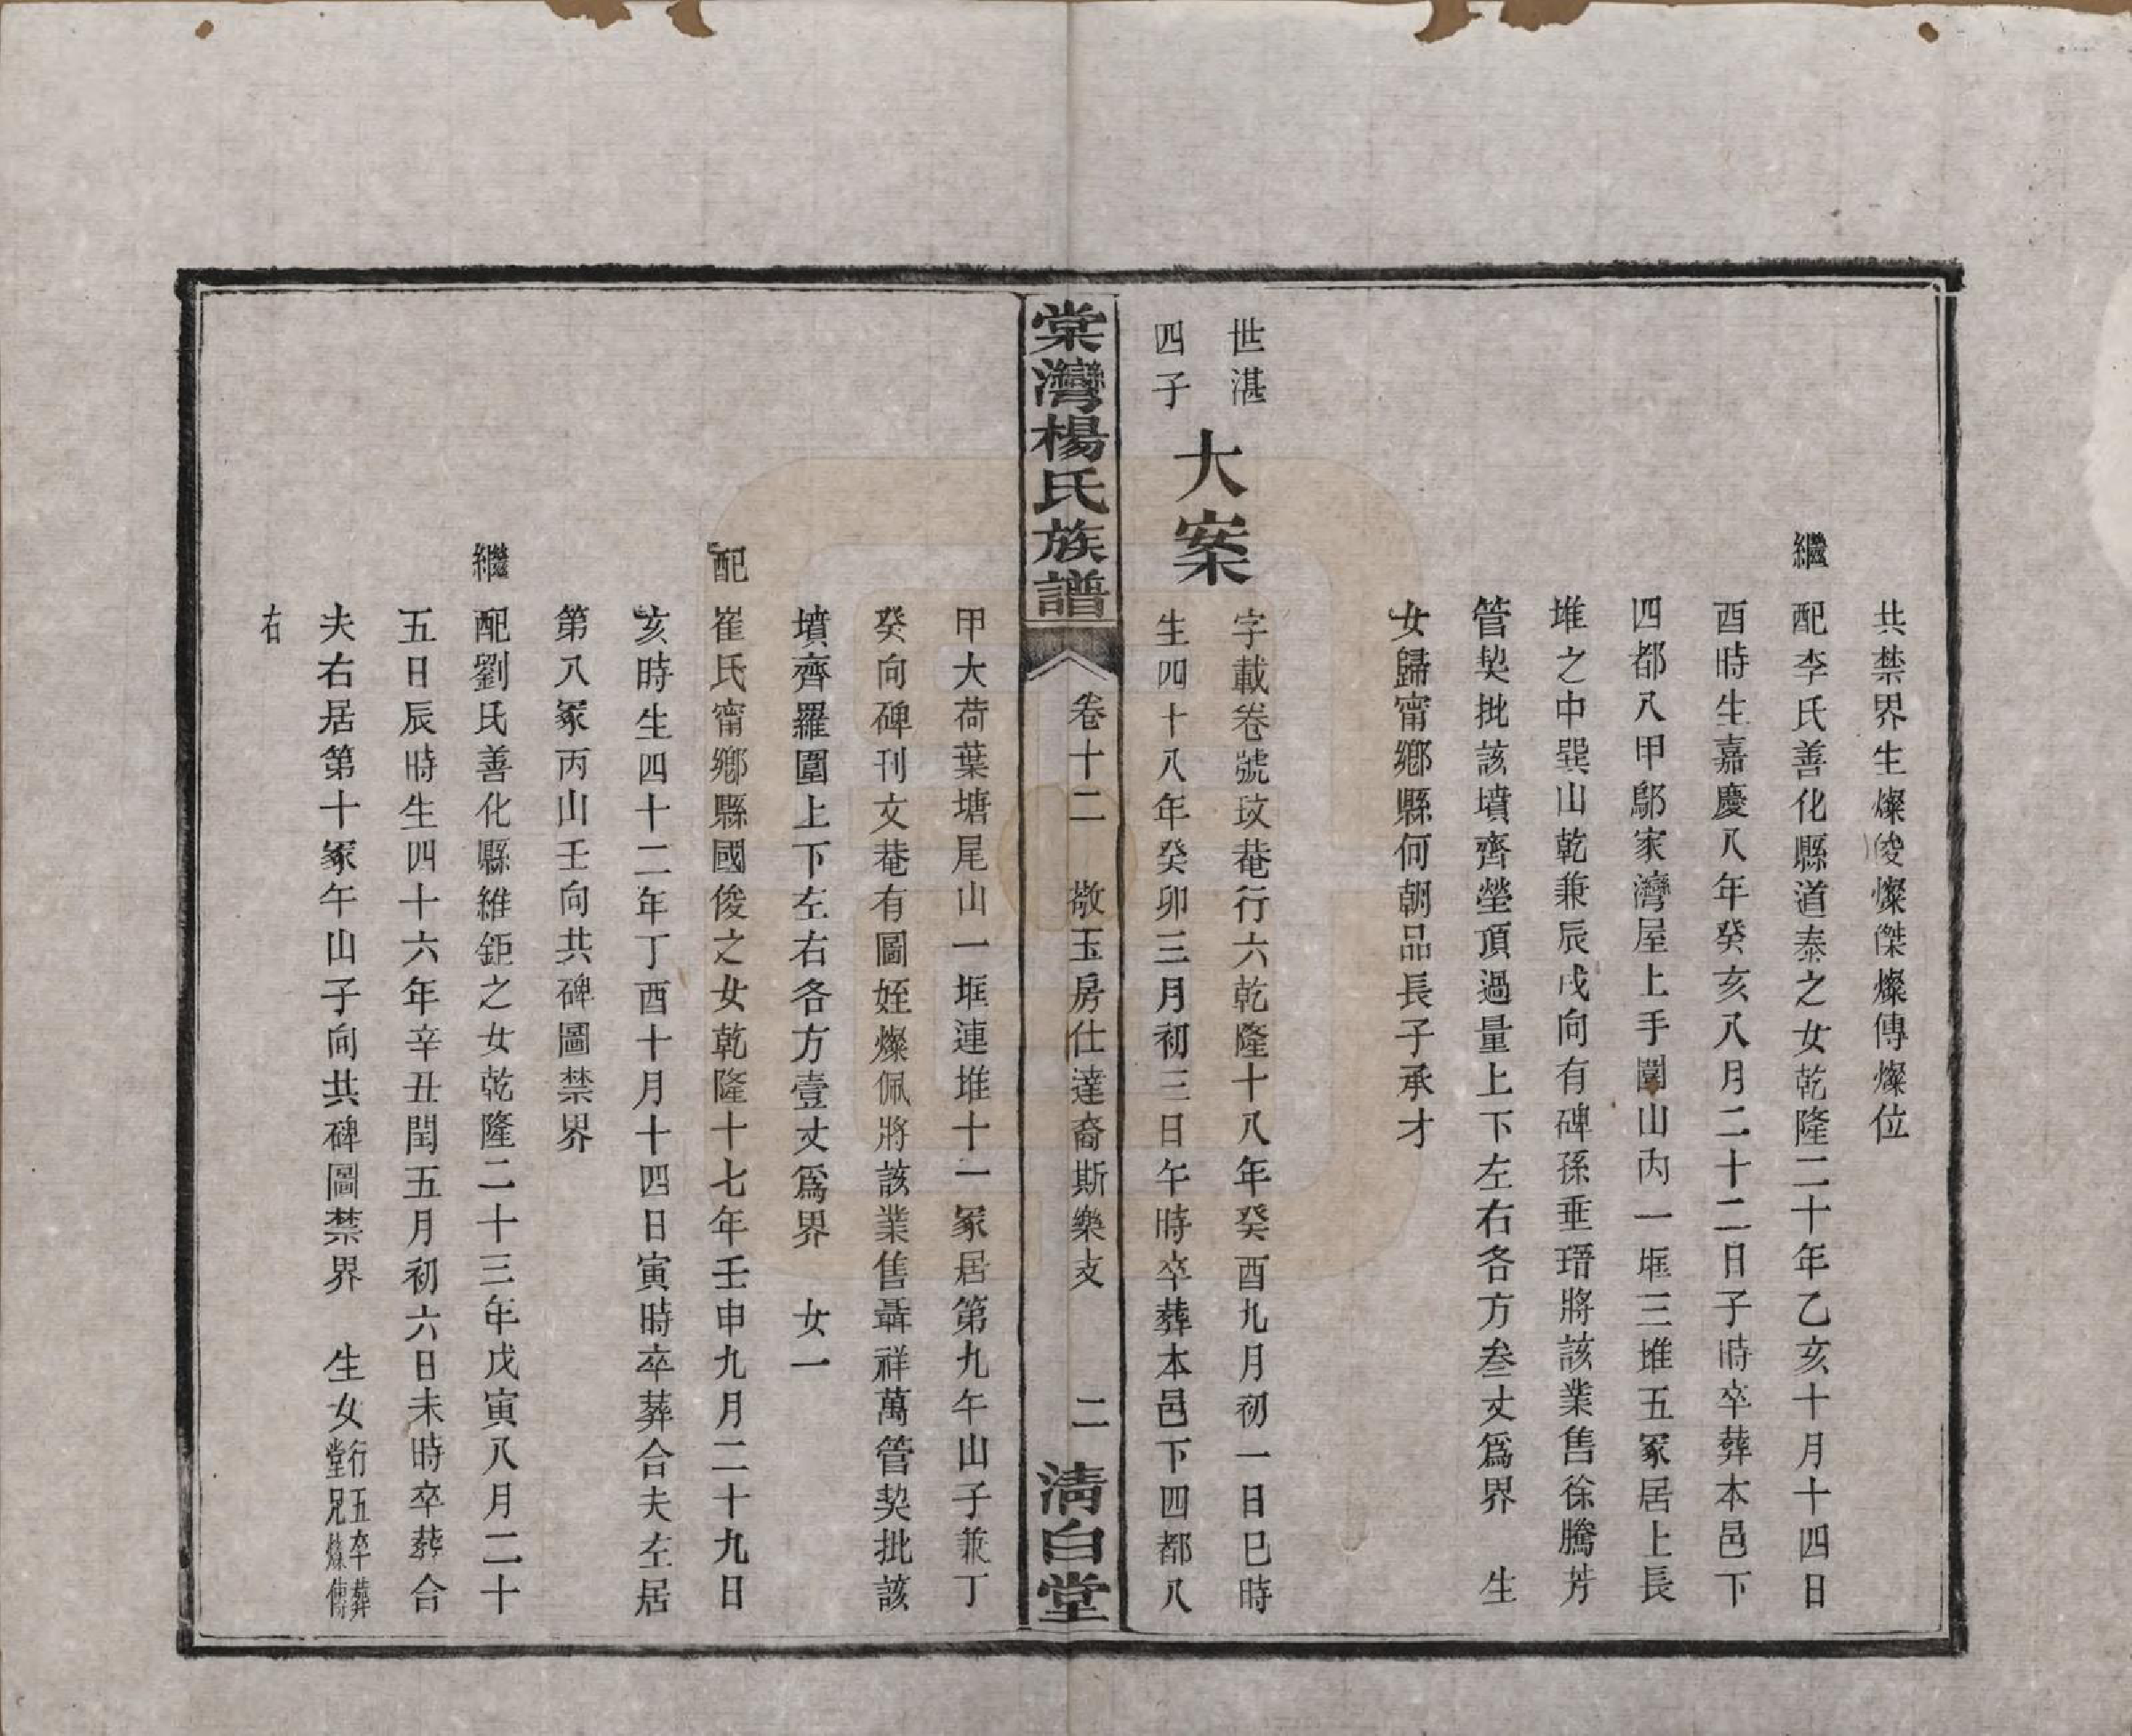 共禁界生燦俊燦傑燦傳燦位
繼配李氏善化縣道泰之女乾隆二十年乙亥十月十四日
酉時生嘉慶八年癸亥八月二十二日子時卒葬本邑下
四都八甲鄔家灣屋上手園山內一堆三堆五冢居上長
堆之中巽山乾兼辰戌向有碑孫垂瑨將該業售徐騰芳
管契批該墳齊塋頂過量上下左右各方叁丈爲界 生
女歸甯鄉縣何朝品長子承才
世湛
四子
大案
字載卷號玟菴行六乾隆十八年癸酉九月初一日巳時
生四十八年癸卯三月初三日午時卒葬本邑下四都八
棠灣楊氏族譜 卷十二 敬玉房仕達裔斯樂支 二 淸白堂
甲大荷葉塘尾山一堆連堆十一冢居第九午山子兼丁
癸向碑刊文菴有圖姪燦佩將該業售聶祥萬管契批該
墳齊羅圍上下左右各方壹丈爲界 女一
配崔氏甯鄉縣國俊之女乾隆十七年壬申九月二十九日
亥時生四十二年丁酉十月十四日寅時卒葬合夫左居
第八冢丙山壬向共碑圖禁界
繼配劉氏善化縣維鉅之女乾隆二十三年戊寅八月二十
五日辰時生四十六年辛丑閏五月初六日未時卒葬合
夫右居第十冢午山子向共碑圖禁界 生女行五卒葬堂兄燦傳
右